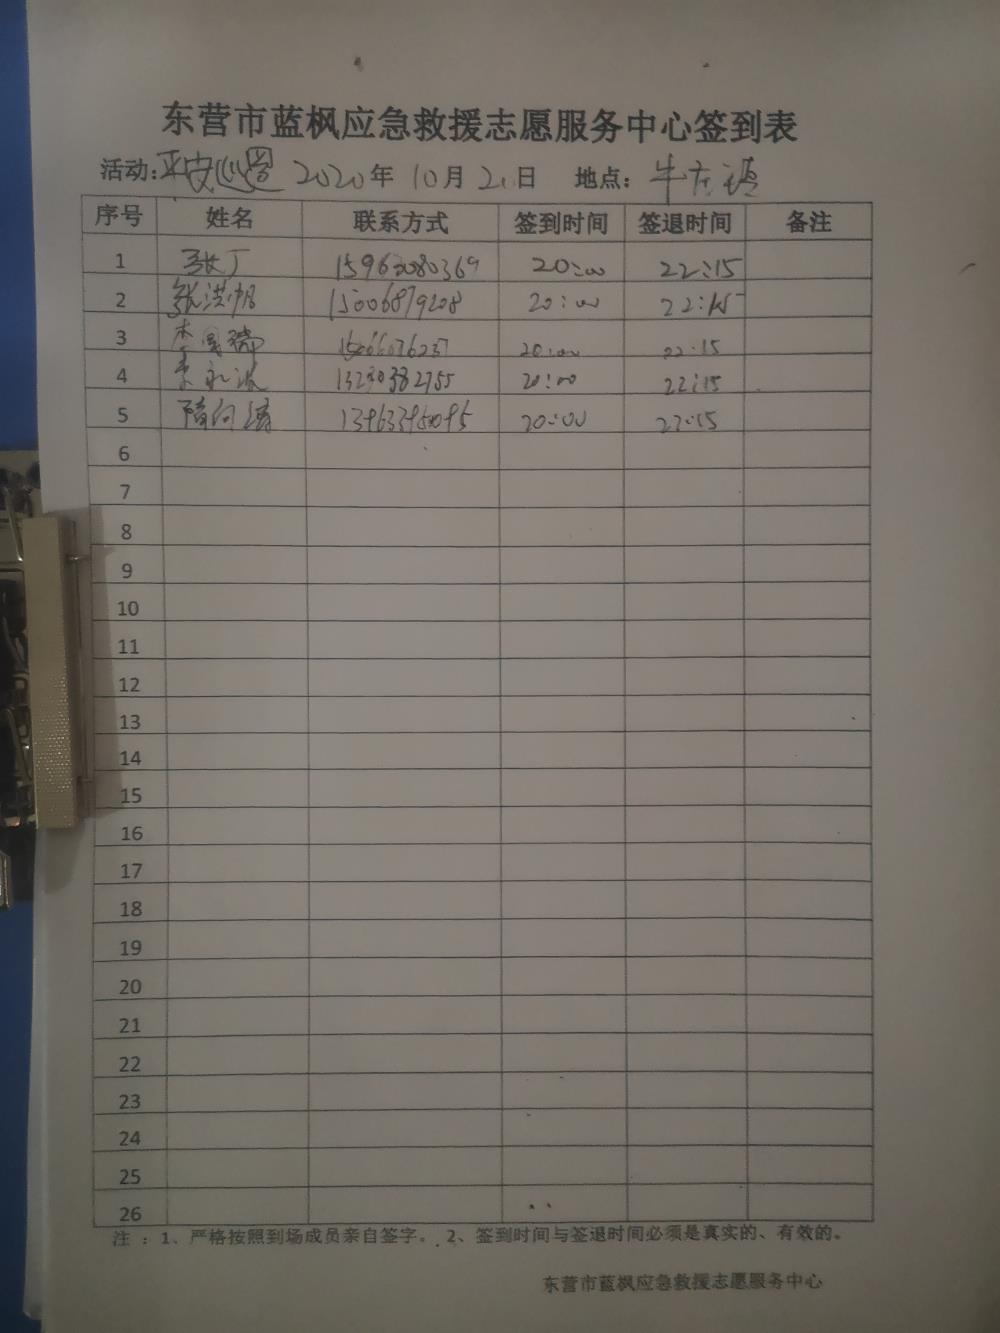 东营市蓝枫应急救援志愿服务中心签到表
活动: 平安巡 2020年 10月 2 日 地点: 牛庄镇
序号 姓名 联系方式 签到时间 签退时间 备注
1 张丁 15963080369 20:00 22:15
2 张洪帅 15006879208 20:00 22:15
3 李国瑞 20:00 22:15
4 李永波 20:00 22:15
5 隋向 20:00 22:15
6
7
8
9
10
11
12
13
14
15
16
17
18
19
20
21
22
23
24
25
26
注 ：1、严格按照到场成员亲自签字。 2、签到时间与签退时间必须是真实的、有效的。
东营市蓝枫应急救援志愿服务中心